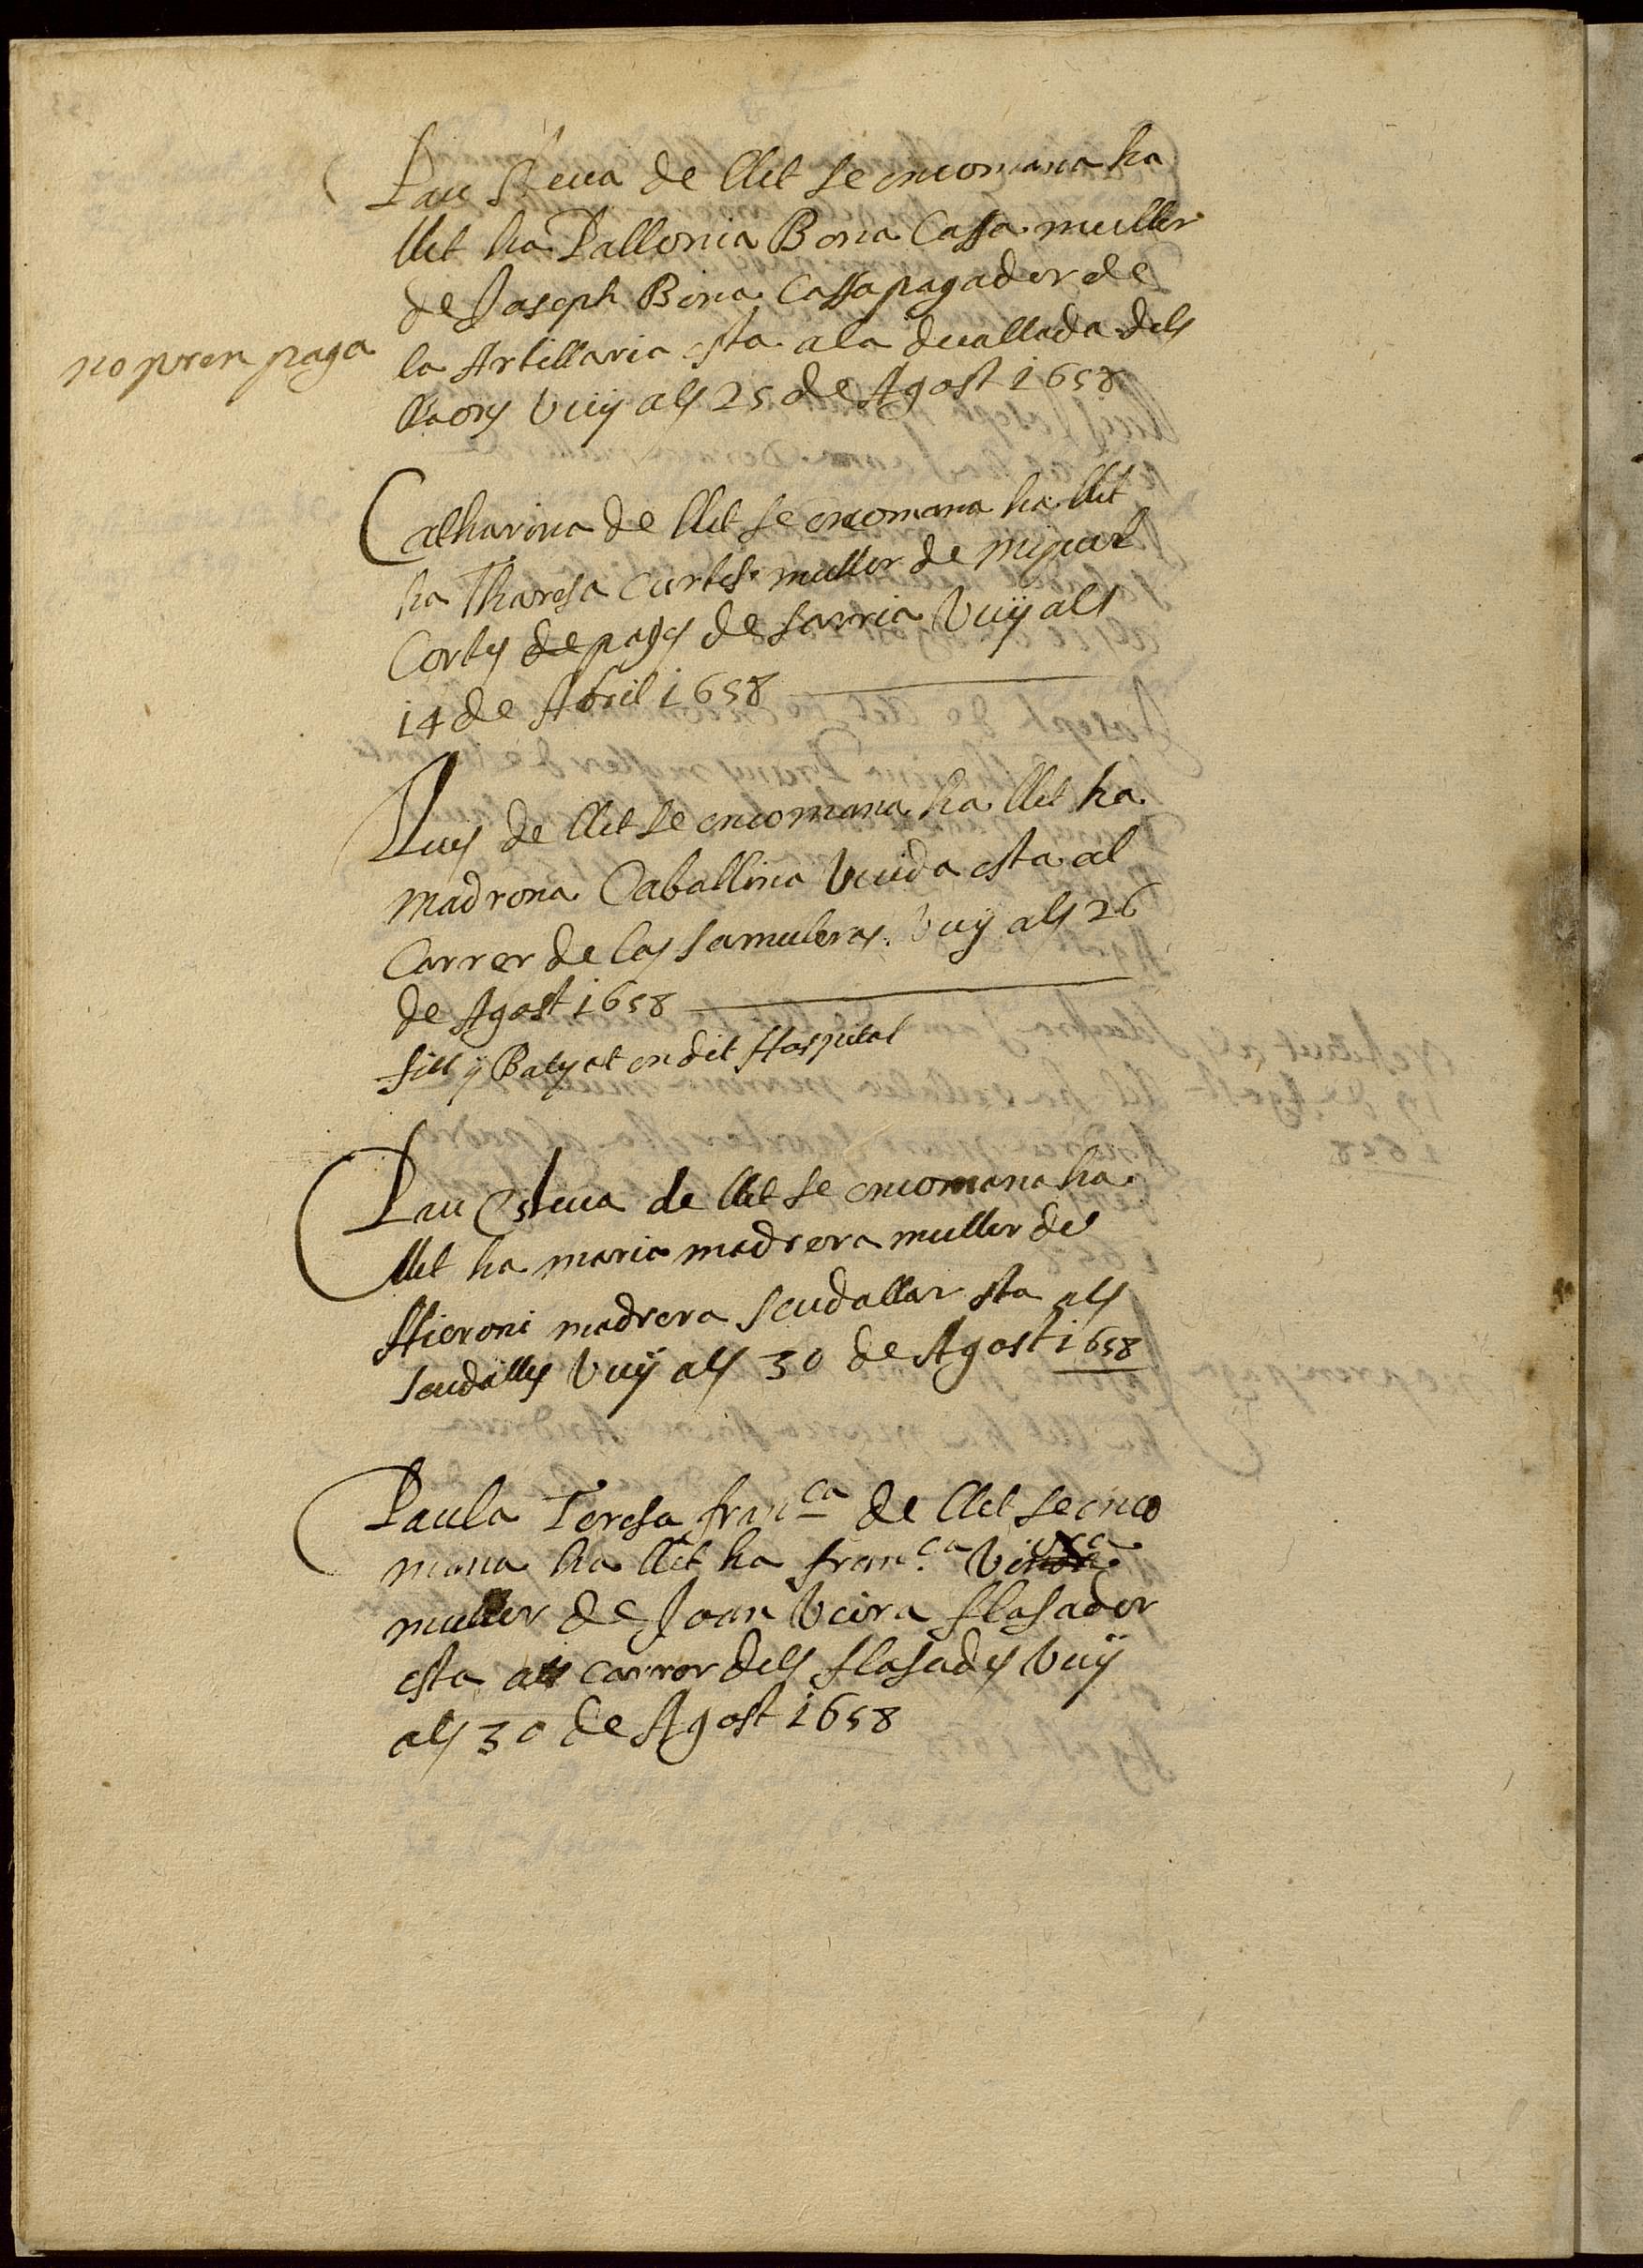 Pau Steua de llet se encomana ha
llet ha Pallonia Bona Cassa muller
de Joseph Bona Cassa pagador de
no pren paga
la Artillaria esta a la deuallada dels
lleons Vuy als 25 de Agost 1658
Catharina de llet se encomana ha llet
ha Tharesa Cortes muller de miquel
Cortes de pages de Sarria Vuÿ als
14 de Abril 1658
Lluis de llet se encomana ha llet ha
madrona Caballina Viuda esta al
Carrer de las Samuleras Vuy als 26
de Agost 1658
fill y Batejat en dit Hospital
Pau Esteua de llet se encomana ha
llet ha maria madrera muller de
Hieroni madrera Scudaller sta als
Scudallers Vuÿ als 30 de Agost 1658
Paula Teresa franca de llet se enco
mana ha llet ha franca
muller de Joan Veira flasader
esta al carrer dels flasades Vuÿ
als 30 de Agost 1658